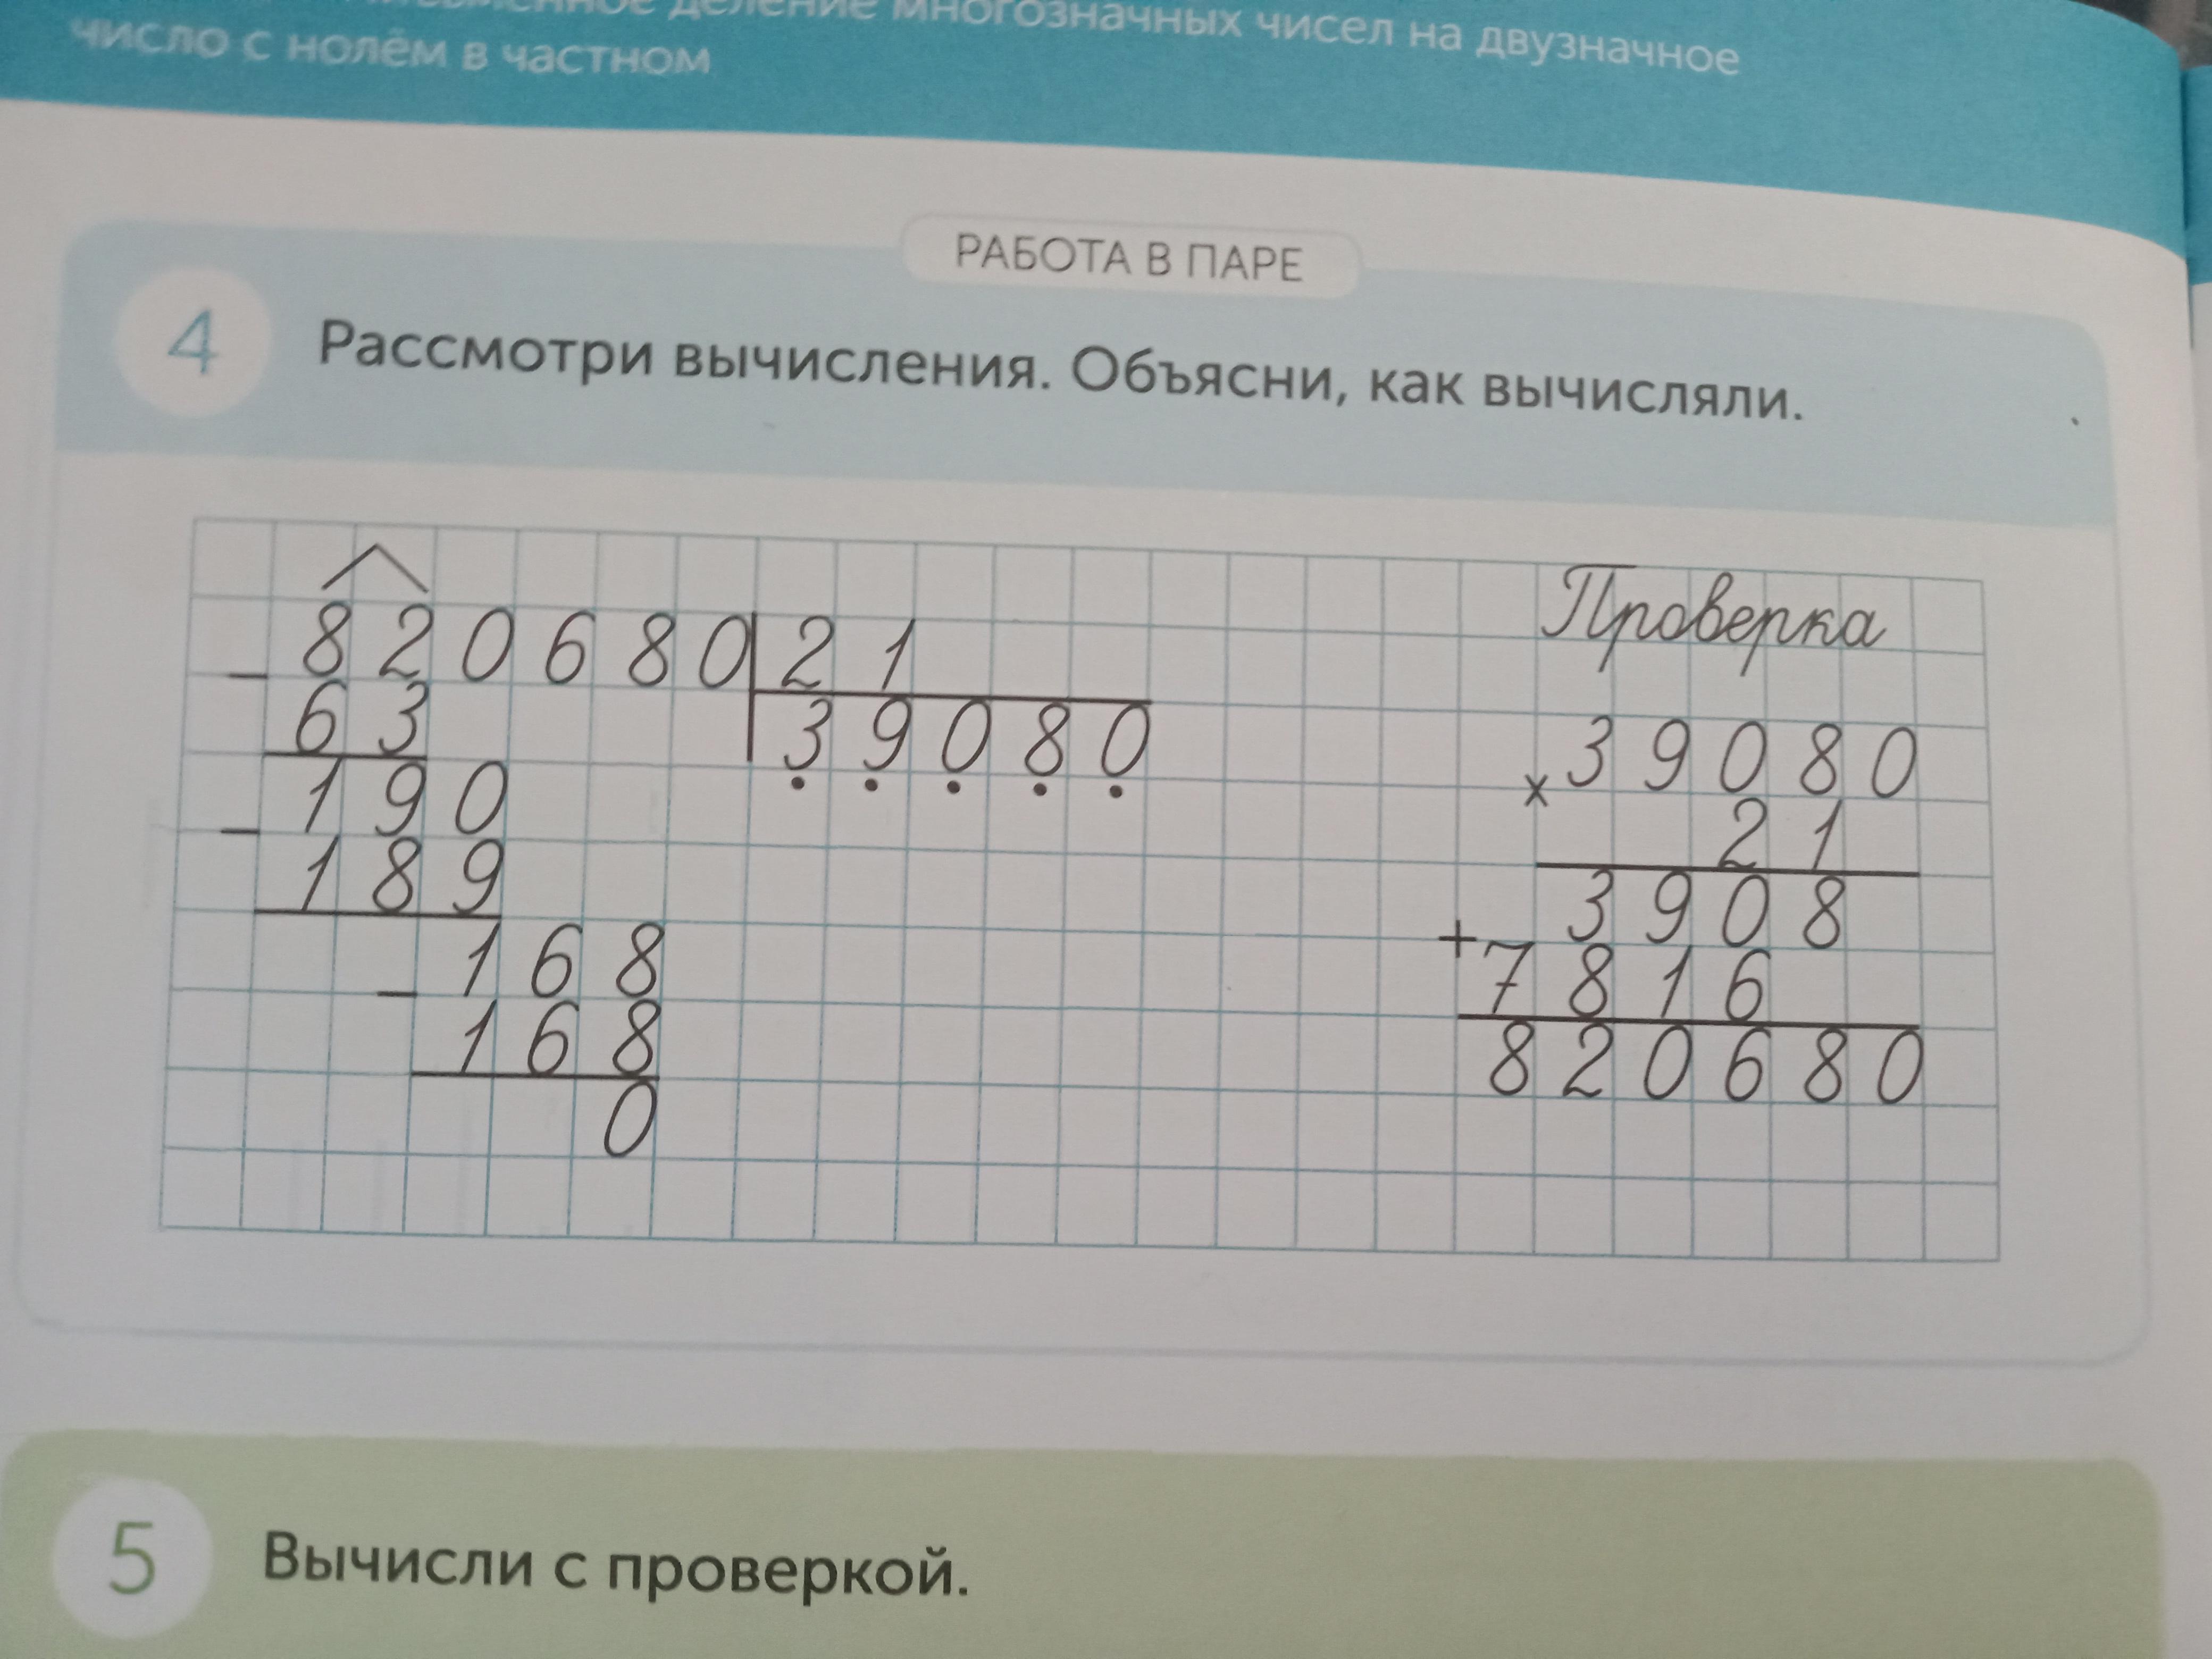 деление многозначных чисел на двузначное
число с нолём в частном
РАБОТА В ПАРЕ
4 Рассмотри вычисления. Объясни, как вычисляли.
Проверка
− 820680 | 21
63 | 39080
− 190
189
− 168
168
0
× 39080
21
+ 3908
7816
820680
5 Вычисли с проверкой.